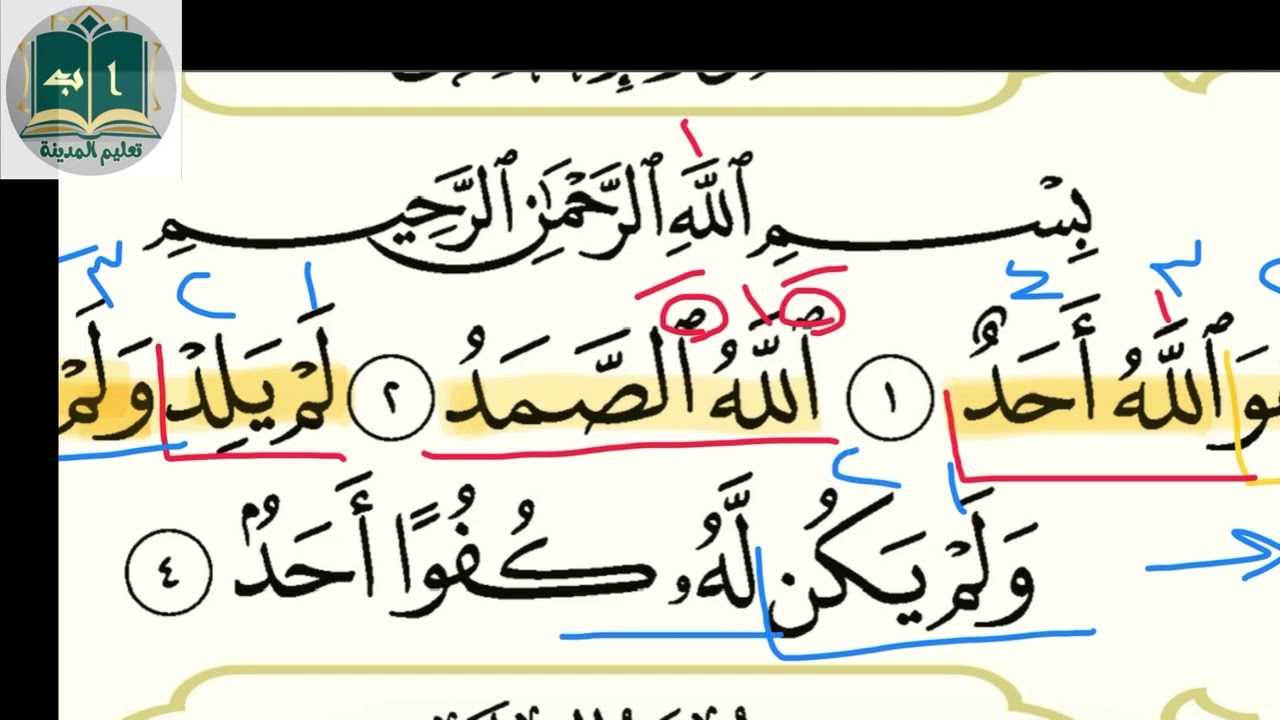 تعليم المدينة
بِسْمِ ٱللَّهِ ٱلرَّحْمَٰنِ ٱلرَّحِيمِ
ٱللَّهُ أَحَدٌ ١ ٱللَّهُ ٱلصَّمَدُ ٢ لَمْ يَلِدْ وَلَمْ
وَلَمْ يَكُن لَّهُۥ كُفُوًا أَحَدٌۢ ٤